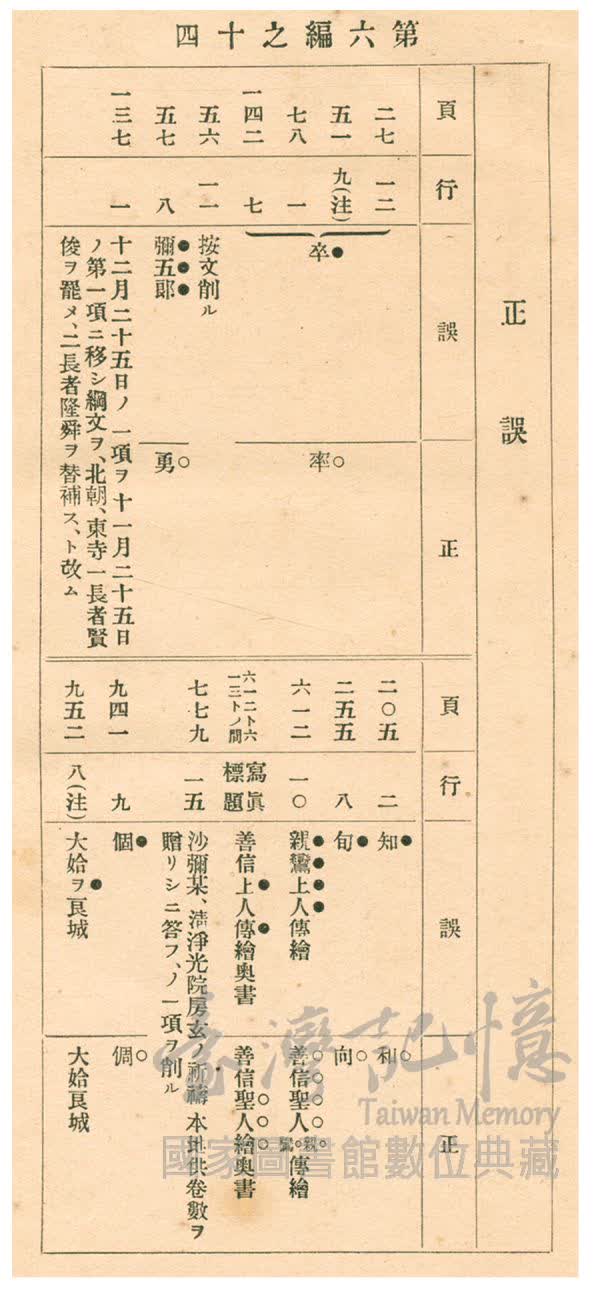 第六編之十四
正誤
頁 行 誤 正
二七 一二
五一 九(注)
七八 一
一四二 七
卒 率
五六 一一 按文削ル
五七 八 彌五郞 勇
一三七 一 十二月二十五日ノ一項ヲ十一月二十五日
ノ第一項ニ移シ綱文ヲ、北朝、東寺一長者賢
俊ヲ罷メ、二長者隆舜ヲ替補ス、ト改ム
頁 行 誤 正
二〇五 二 知 和
二五五 八 旬 向
六一二 一〇 親鸞上人傳繪 善信聖人親鸞傳繪
六一二ト六一三トノ間 寫眞標題 善信上人傳繪奧書 善信聖人繪奧書
七七九 一五 沙彌某、淸淨光院房玄ノ祈禱本地供卷數ヲ
贈リシニ答フ、ノ一項ヲ削ル
九四一 九 個 倜
九五二 八(注) 大姶ヲ良城 大姶良城
臺灣記憶
Taiwan Memory
國家圖書館數位典藏